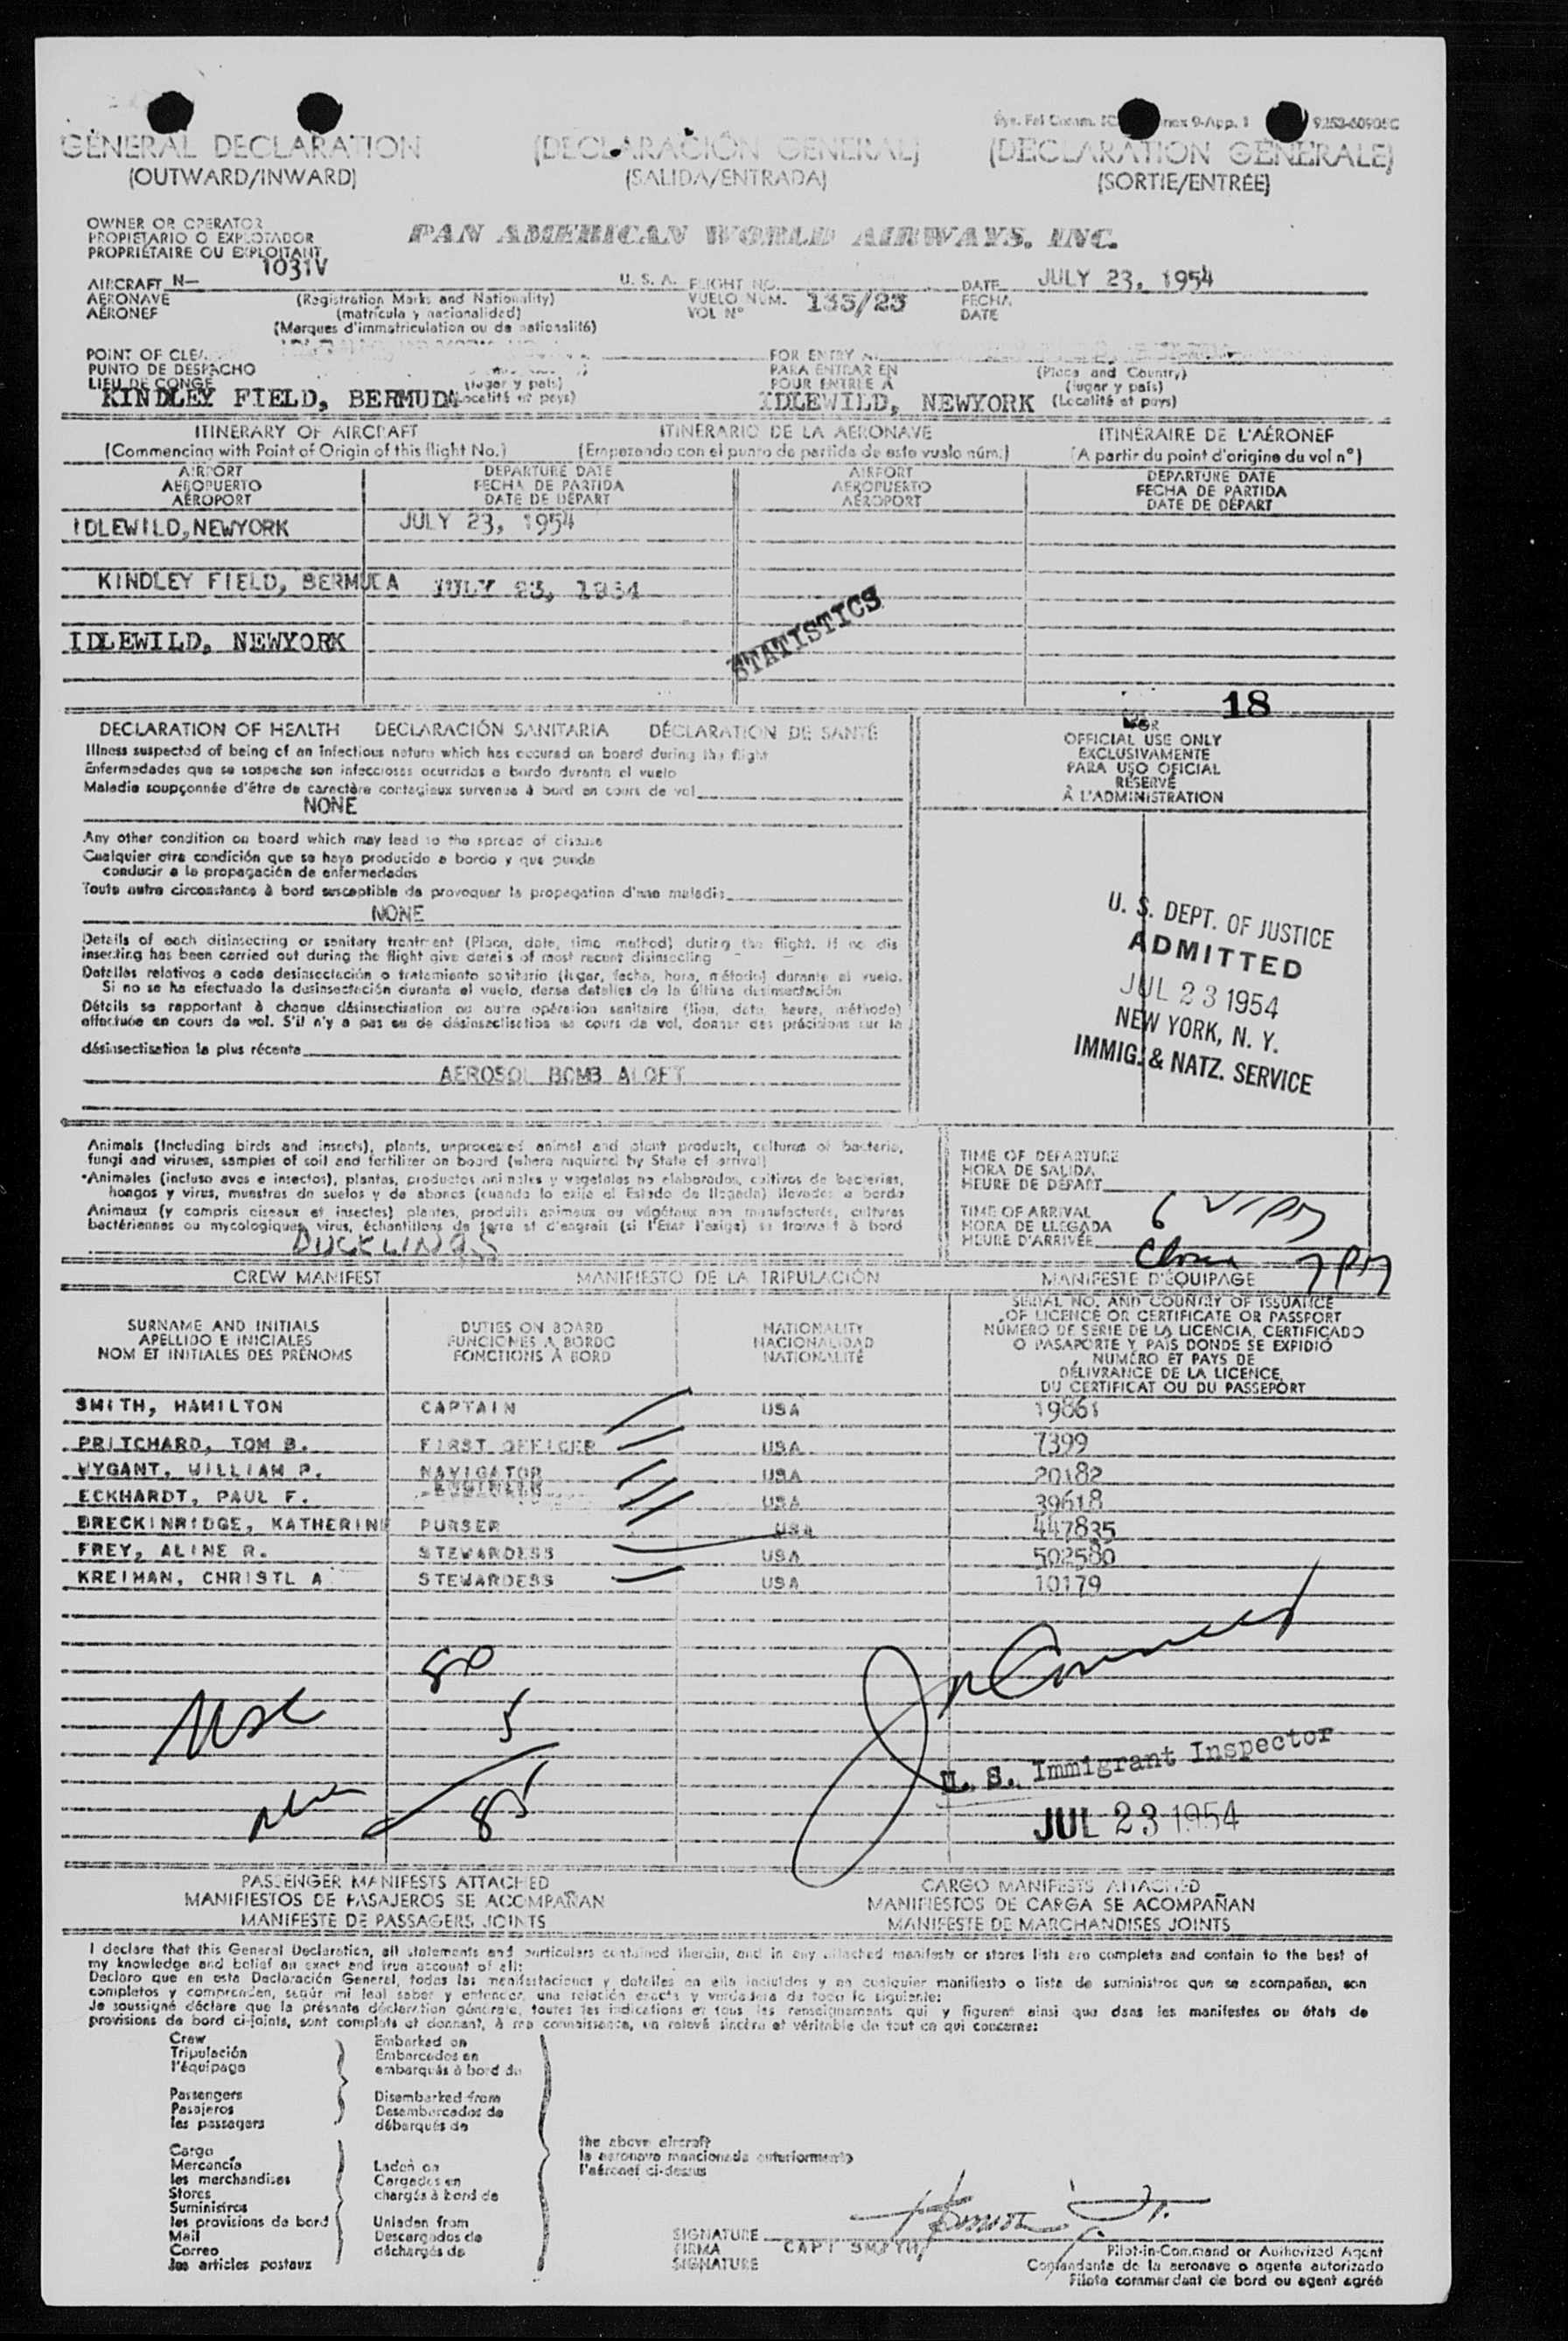 Sys. Fel Comm. IC nex 9-App. 1 9252-60905C
GENERAL DECLARATION (DECLARACIÓN GENERAL) (DECLARATION GÉNÉRALE)
(OUTWARD/INWARD) (SALIDA/ENTRADA) (SORTIE/ENTRÉE)
OWNER OR OPERATOR
PROPIETARIO O EXPLOTADOR
PROPRIÉTAIRE OU EXPLOITANT
PAN AMERICAN WORLD AIRWAYS, INC.
1031V
AIRCRAFT N— U. S. A. FLIGHT NO. DATE JULY 23, 1954
AERONAVE (Registration Marks and Nationality) VUELO NUM. 135/23 FECHA
AÉRONEF (matrícula y nacionalidad) VOL Nº DATE
(Marques d'immatriculation ou de nationalité)
POINT OF CLEA FOR ENTRY A
PUNTO DE DESPACHO PARA ENTRAR EN (Place and Country)
LIEU DE CONGE (lugar y país) POUR ENTRÉE À (lugar y país)
KINDLEY FIELD, BERMUDA (Localité et pays) IDLEWILD, NEWYORK (Localité et pays)
ITINERARY OF AIRCRAFT ITINERARIO DE LA AERONAVE ITINÉRAIRE DE L'AÉRONEF
(Commencing with Point of Origin of this flight No.) (Empezando con el punto de partida de este vuelo núm.) (A partir du point d'origine du vol nº)
AIRPORT DEPARTURE DATE AIRPORT DEPARTURE DATE
AEROPUERTO FECHA DE PARTIDA AEROPUERTO FECHA DE PARTIDA
AÉROPORT DATE DE DÉPART AÉROPORT DATE DE DÉPART
IDLEWILD, NEWYORK JULY 23, 1954
KINDLEY FIELD, BERMUDA JULY 23, 1954
STATISTICS
IDLEWILD, NEWYORK
18
DECLARATION OF HEALTH DECLARACIÓN SANITARIA DÉCLARATION DE SANTÉ
Illness suspected of being of an infectious nature which has occured on board during the flight
Enfermedades que se sospeche son infecciosas ocurridas a bordo durante el vuelo
Maladie soupçonnée d'être de caractère contagieux survenue à bord en cours de vol
NONE
FOR
OFFICIAL USE ONLY
EXCLUSIVAMENTE
PARA USO OFICIAL
RÉSERVÉ
À L'ADMINISTRATION
Any other condition on board which may lead to the spread of disease
Cualquier otra condición que se haya producido a bordo y que pueda
conducir a la propagación de enfermedades
Toute autre circonstance à bord susceptible de provoquer la propagation d'une maladie
NONE
Details of each disinsecting or sanitary treatment (Place, date, time method) during the flight. If no dis
insecting has been carried out during the flight give details of most recent disinsecting
Detalles relativos a cada desinsectación o tratamiento sanitario (lugar, fecha, hora, método) durante el vuelo.
Si no se ha efectuado la desinsectación durante el vuelo, dense detalles de la última desinsectación
Détails se rapportant à chaque désinsectisation ou autre opération sanitaire (lieu, date, heure, méthode)
effectuée en cours de vol. S'il n'y a pas eu de désinsectisation en cours de vol, donner des précisions sur la
désinsectisation la plus récente
AEROSOL BOMB ALOFT
U. S. DEPT. OF JUSTICE
ADMITTED
JUL 23 1954
NEW YORK, N. Y.
IMMIG. & NATZ. SERVICE
Animals (Including birds and insects), plants, unprocessed animal and plant products, cultures of bacteria,
fungi and viruses, samples of soil and fertilizer on board (where required by State of arrival)
•Animales (incluso aves e insectos), plantas, productos animales y vegetales no elaborados, cultivos de bacterias,
hongos y virus, muestras de suelos y de abonos (cuando lo exija el Estado de llegada) llevados a bordo
Animaux (y compris oiseaux et insectes) plantes, produits animaux ou végétaux non manufacturés, cultures
bactériennes ou mycologiques, virus, échantillons de terre et d'engrais (si l'État l'exige) se trouvant à bord
DUCKLINGS
TIME OF DEPARTURE
HORA DE SALIDA
HEURE DE DÉPART
TIME OF ARRIVAL
HORA DE LLEGADA
HEURE D'ARRIVÉE
7 PM
CREW MANIFEST MANIFIESTO DE LA TRIPULACIÓN MANIFESTE D'ÉQUIPAGE
SURNAME AND INITIALS DUTIES ON BOARD NATIONALITY
APELLIDO E INICIALES FUNCIONES A BORDO NACIONALIDAD
NOM ET INITIALES DES PRÉNOMS FONCTIONS À BORD NATIONALITÉ
SERIAL NO. AND COUNTRY OF ISSUANCE
OF LICENCE OR CERTIFICATE OR PASSPORT
NÚMERO DE SERIE DE LA LICENCIA, CERTIFICADO
O PASAPORTE Y PAÍS DONDE SE EXPIDIÓ
NUMÉRO ET PAYS DE
DÉLIVRANCE DE LA LICENCE,
DU CERTIFICAT OU DU PASSEPORT
SMITH, HAMILTON CAPTAIN USA 19861
PRITCHARD, TOM B. FIRST OFFICER USA 7399
WYGANT, WILLIAM P. NAVIGATOR USA 20182
ECKHARDT, PAUL F. ENGINEER USA 39618
BRECKINRIDGE, KATHERINE PURSER USA 447835
FREY, ALINE R. STEWARDESS USA 502580
KREIMAN, CHRISTL A STEWARDESS USA 10179
80
5
85
U. S. Immigrant Inspector
JUL 23 1954
PASSENGER MANIFESTS ATTACHED CARGO MANIFESTS ATTACHED
MANIFIESTOS DE PASAJEROS SE ACOMPAÑAN MANIFIESTOS DE CARGA SE ACOMPAÑAN
MANIFESTE DE PASSAGERS JOINTS MANIFESTE DE MARCHANDISES JOINTS
I declare that this General Declaration, all statements and particulars contained therein, and in any attached manifests or stores lists are complete and contain to the best of
my knowledge and belief an exact and true account of all:
Declaro que en esta Declaración General, todas las manifestaciones y detalles en ella incluidos y en cualquier manifiesto o lista de suministros que se acompañan, son
completos y comprenden, según mi leal saber y entender, una relación exacta y verdadera de todo lo siguiente:
Je soussigné déclare que la présente déclaration générale, toutes les indications et tous les renseignements qui y figurent ainsi que dans les manifestes ou états de
provisions de bord ci-joints, sont complets et donnent, à ma connaissance, un relevé sincère et véritable de tout ce qui concerne:
Crew Embarked on
Tripulación Embarcados en
l'équipage embarqués à bord de
Passengers Disembarked from
Pasajeros Desembarcados de
les passagers débarqués de
the above aircraft
la aeronave mencionada anteriormente
l'aéronef ci-dessus
Cargo
Mercancía Laden on
les merchandises Cargados en
Stores chargés à bord de
Suministros
les provisions de bord Unladen from
Mail Descargados de
Correo déchargés de
les articles postaux
SIGNATURE
FIRMA CAPT SMITH
SIGNATURE
Pilot-in-Command or Authorized Agent
Comandante de la aeronave o agente autorizado
Pilote commandant de bord ou agent agréé